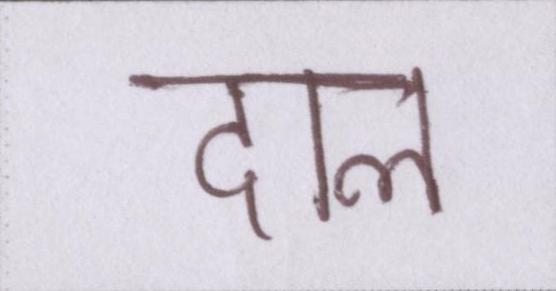 दाल